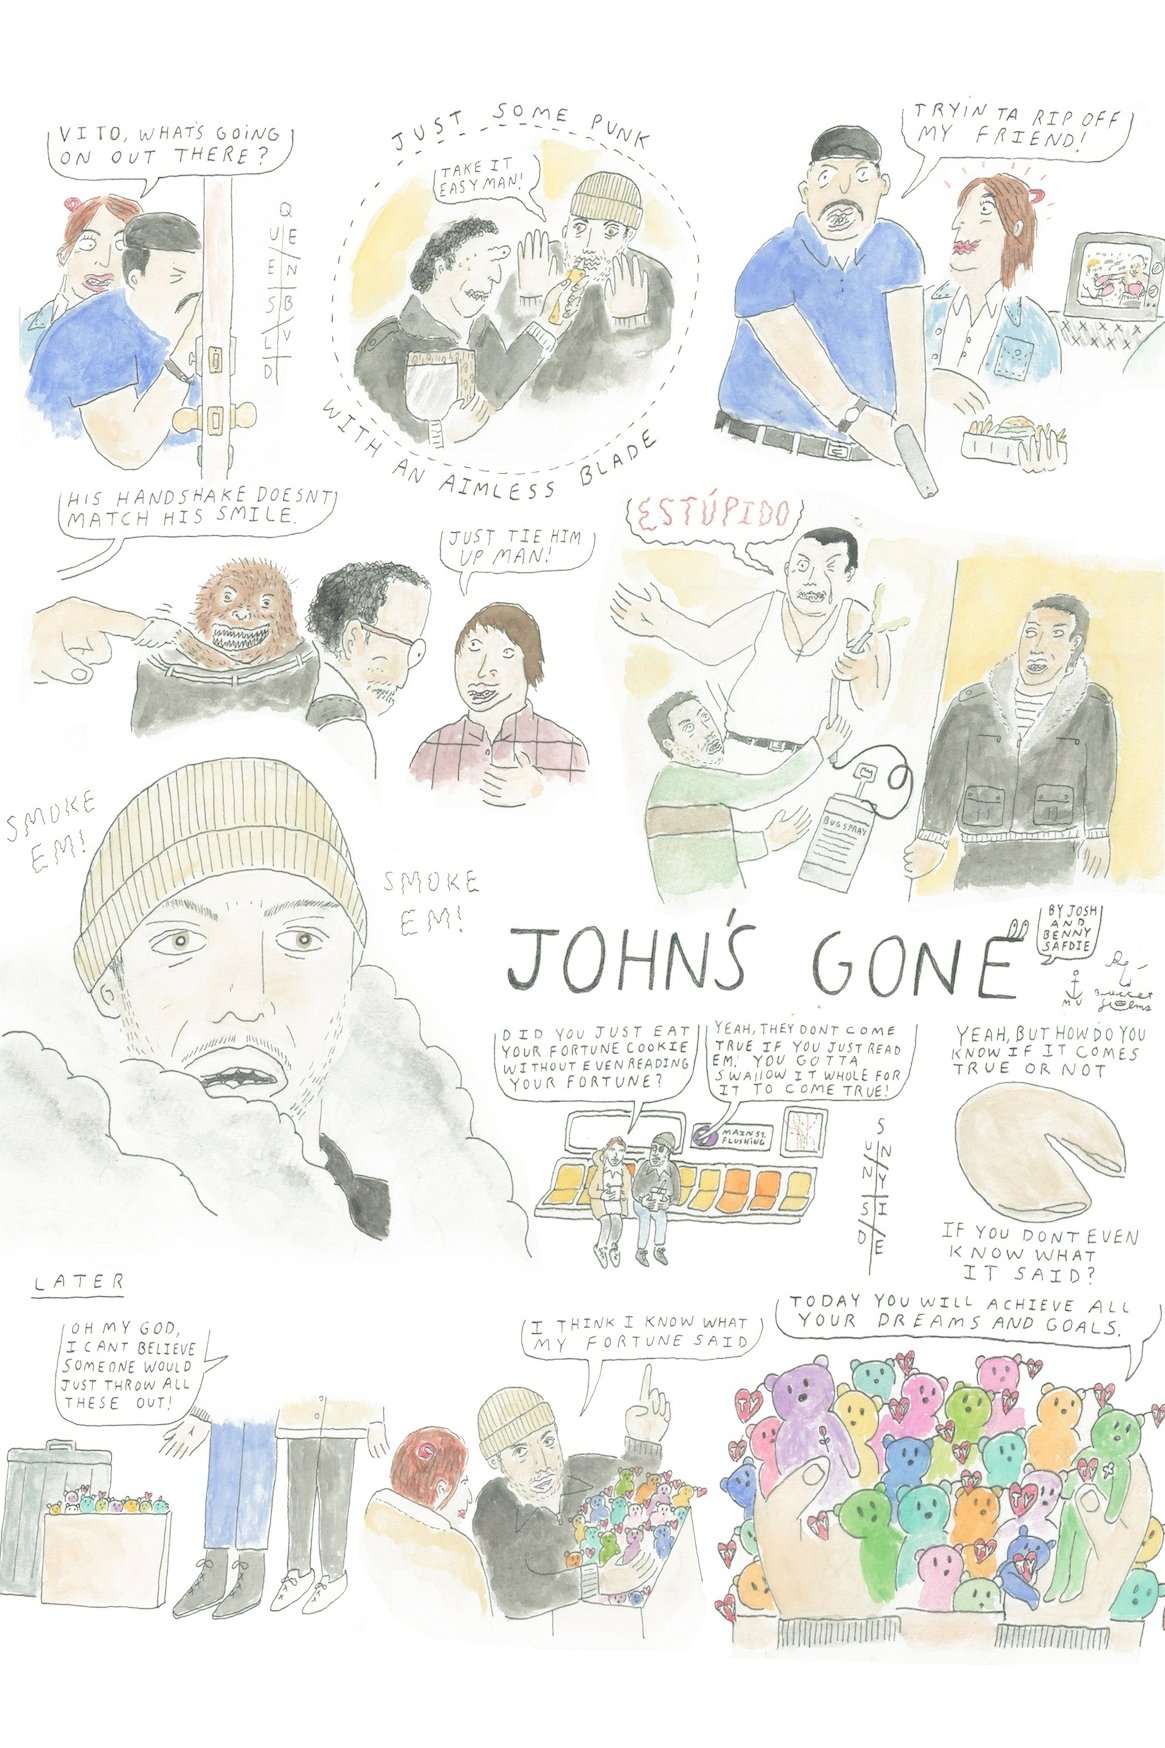 VITO, WHAT'S GOING
ON OUT THERE?
QUEENSBLVD
JUST SOME PUNK
TAKE IT
EASY MAN!
WITH AN AIMLESS BLADE
TRYIN TA RIP OFF
MY FRIEND!
HIS HANDSHAKE DOESNT
MATCH HIS SMILE.
JUST TIE HIM
UP MAN!
ESTÚPIDO
BUG SPRAY
SMOKE
EM!
SMOKE
EM!
JOHN'S GONE
BY JOSH
AND
BENNY
SAFDIE
MV
DID YOU JUST EAT
YOUR FORTUNE COOKIE
WITHOUT EVEN READING
YOUR FORTUNE?
YEAH, THEY DONT COME
TRUE IF YOU JUST READ
EM! YOU GOTTA
SWALLOW IT WHOLE FOR
IT TO COME TRUE!
MAIN ST.
FLUSHING
SUNNYSIDE
YEAH, BUT HOW DO YOU
KNOW IF IT COMES
TRUE OR NOT
IF YOU DONT EVEN
KNOW WHAT
IT SAID?
LATER
OH MY GOD,
I CANT BELIEVE
SOMEONE WOULD
JUST THROW ALL
THESE OUT!
I THINK I KNOW WHAT
MY FORTUNE SAID
TODAY YOU WILL ACHIEVE ALL
YOUR DREAMS AND GOALS.